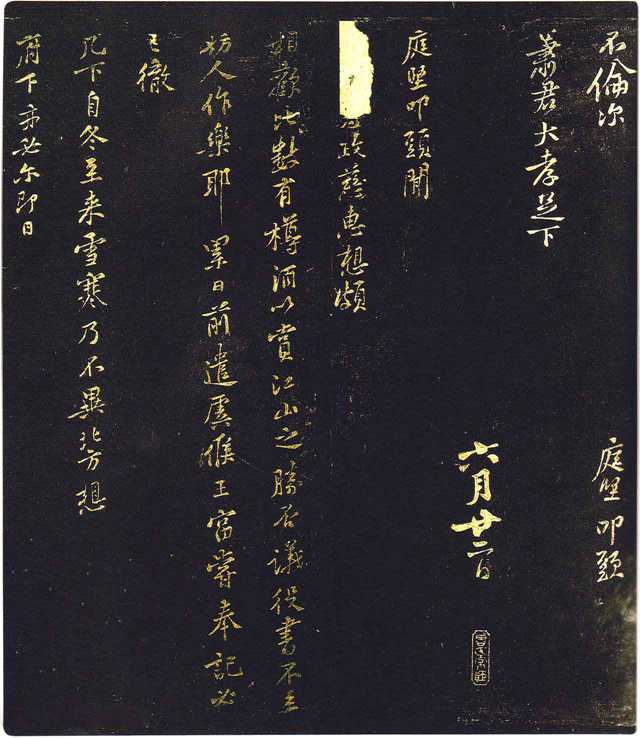 不倫次
庭堅叩頭
蕭君大孝足下
六月廿二日
庭堅叩頭聞
政慈惠想頗
相歡比數有樽酒以賞江山之勝否議役書不至
妨人作樂耶累日前遣虞候王富嘗奉記必
已徹
几下自冬至来雪寒乃不異北方想
府下亦必尔即日